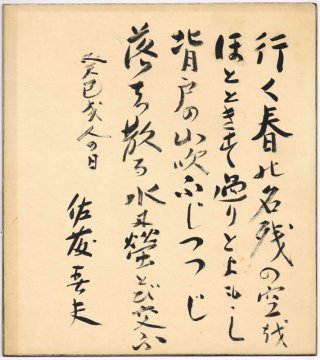 行く春の名残の空を
ほとときす過りとよもし
背戸の山吹ふじつつじ
落ち散る水に螢とび交ふ
癸巳歳人の日
佐藤春夫